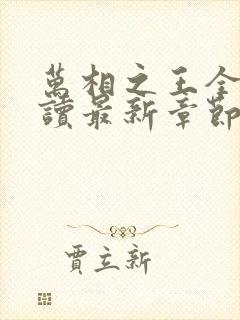 萬相之王全
讀最新章節
賈立新